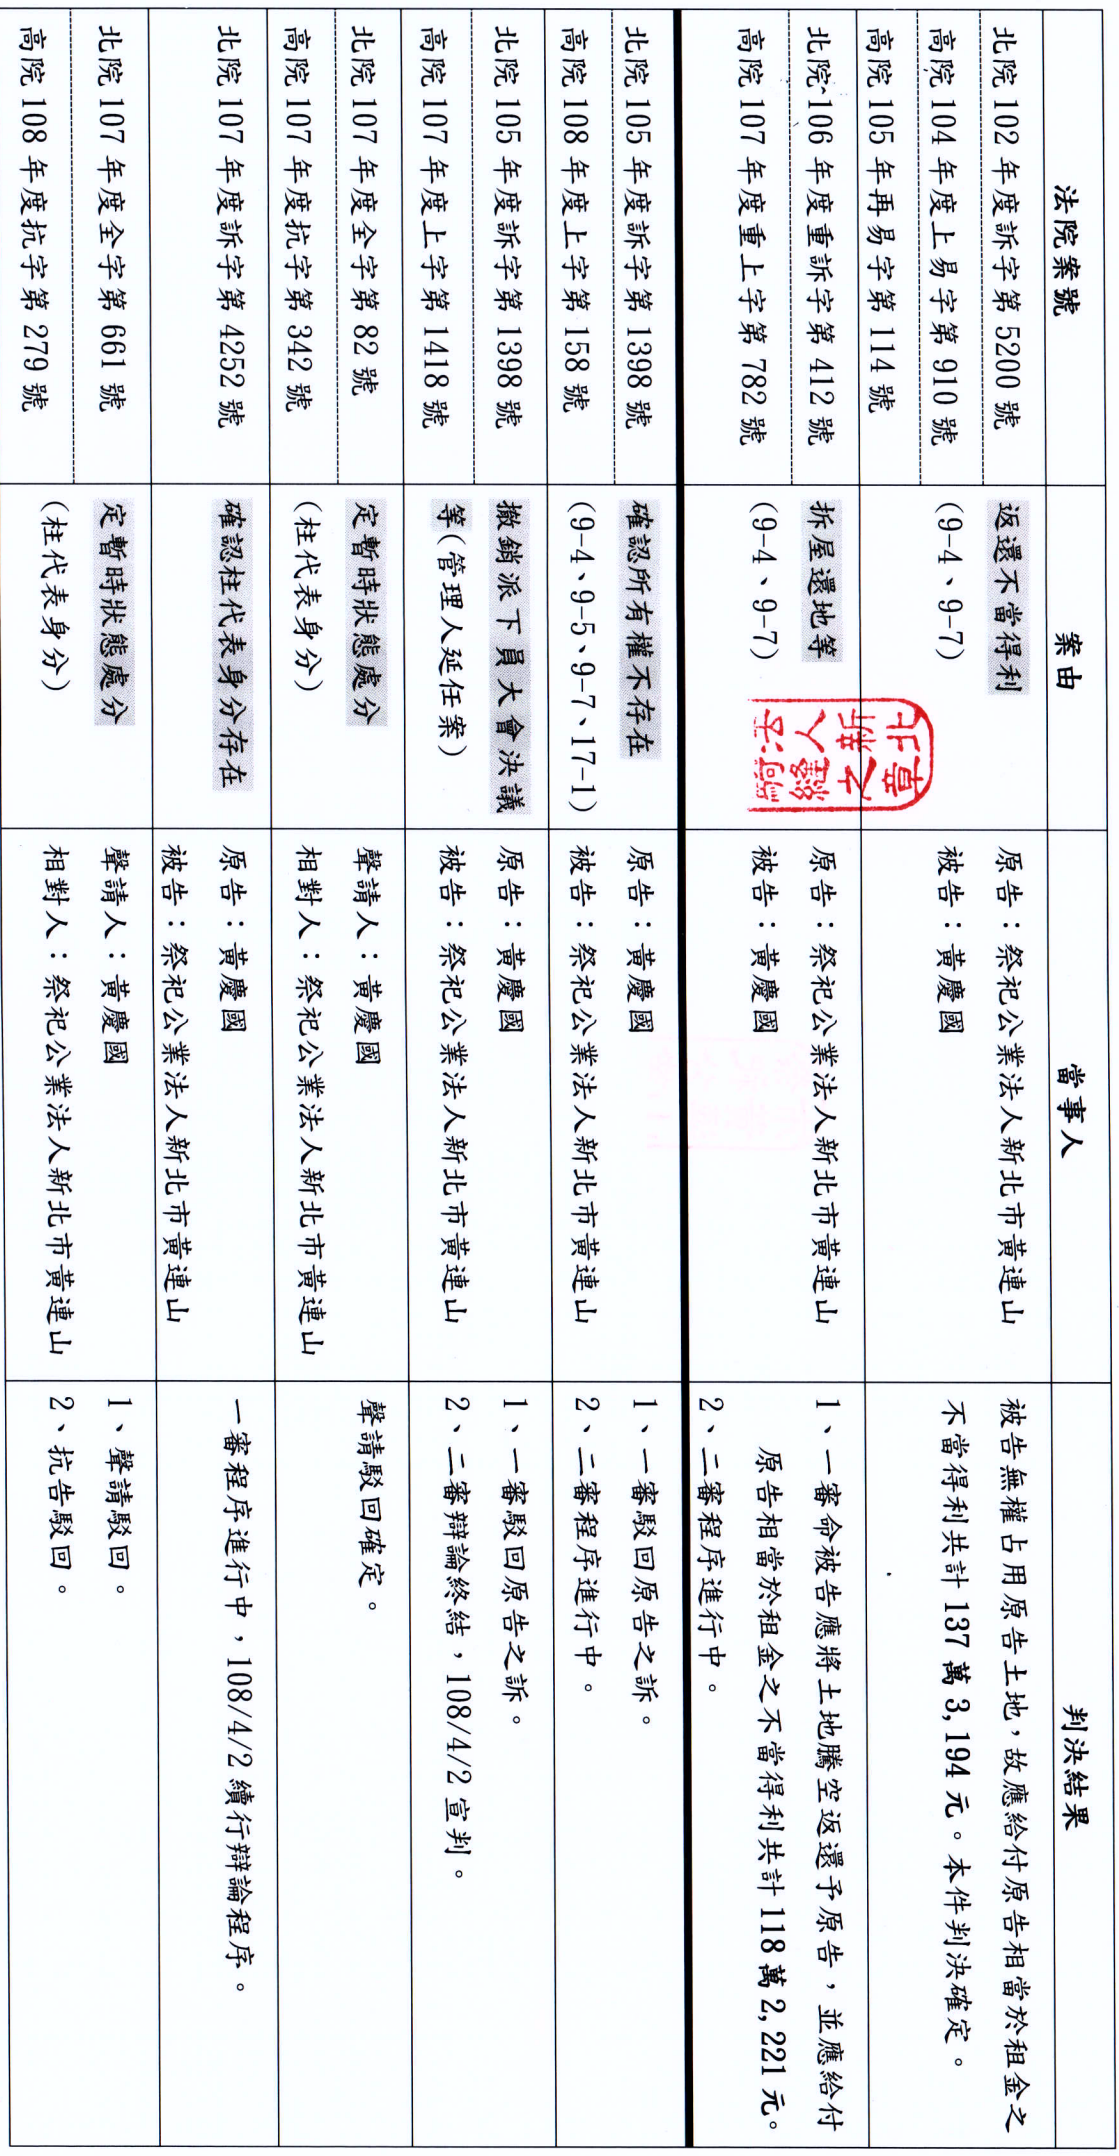 法院案號
案由
當事人
判決結果
北院 102 年度訴字第 5200 號
高院 104 年度上易字第 910 號
高院 105 年再易字第 114 號
返還不當得利
(9-4、9-7)
原告：祭祀公業法人新北市黃連山
被告：黃慶國
被告無權占用原告土地，故應給付原告相當於租金之
不當得利共計 137 萬 3,194 元。本件判決確定。
北院 106 年度重訴字第 412 號
高院 107 年度重上字第 782 號
拆屋還地等
(9-4、9-7)
原告：祭祀公業法人新北市黃連山
被告：黃慶國
1、一審命被告應將土地騰空返還予原告，並應給付
原告相當於租金之不當得利共計 118 萬 2,221 元。
2、二審程序進行中。
北院 105 年度訴字第 1398 號
高院 108 年度上字第 158 號
確認所有權不存在
(9-4、9-5、9-7、17-1)
原告：黃慶國
被告：祭祀公業法人新北市黃連山
1、一審駁回原告之訴。
2、二審程序進行中。
北院 105 年度訴字第 1398 號
高院 107 年度上字第 1418 號
撤銷派下員大會決議
等(管理人延任案)
原告：黃慶國
被告：祭祀公業法人新北市黃連山
1、一審駁回原告之訴。
2、二審辯論終結，108/4/2 宣判。
北院 107 年度全字第 82 號
高院 107 年度抗字第 342 號
定暫時狀態處分
(柱代表身分)
聲請人：黃慶國
相對人：祭祀公業法人新北市黃連山
聲請駁回確定。
北院 107 年度訴字第 4252 號
確認柱代表身分存在
原告：黃慶國
被告：祭祀公業法人新北市黃連山
一審程序進行中，108/4/2 續行辯論程序。
北院 107 年度全字第 661 號
高院 108 年度抗字第 279 號
定暫時狀態處分
(柱代表身分)
聲請人：黃慶國
相對人：祭祀公業法人新北市黃連山
1、聲請駁回。
2、抗告駁回。